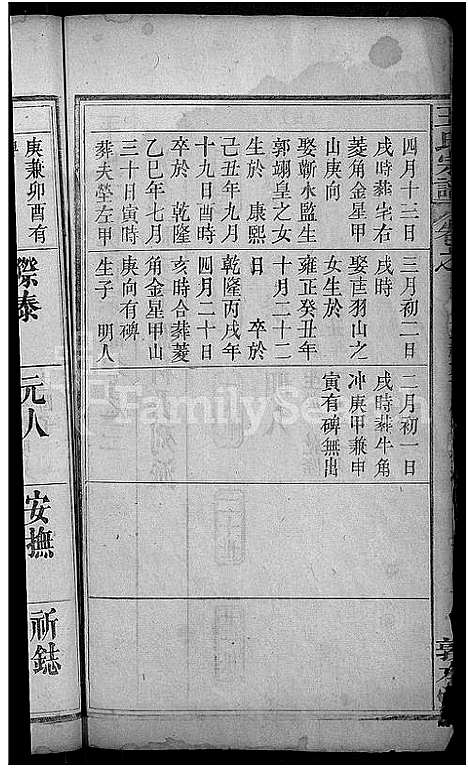 四月十三日
戌時葬宅右
菱角金星甲
山庚向
娶蘄水監生
郭翊皇之女
生於 康熙
己丑年九月
十九日酉時
卒於 乾隆
乙巳年七月
三十日寅時
葬夫塋左甲
三月初二日
戌時
娶茁羽山之
女生於
雍正癸丑年
十月二十二
日 卒於
乾隆丙戌年
四月二十日
亥時合葬菱
角金星甲山
庚向有碑
生子 明人
二月初一日
戌時葬牛角
冲庚甲兼申
寅有碑無出
庚兼卯酉有
際泰
元人
安撫
祈鋕
FamilySearch